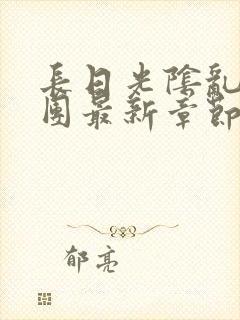 長日光陰亂
團最新章節
郁亮